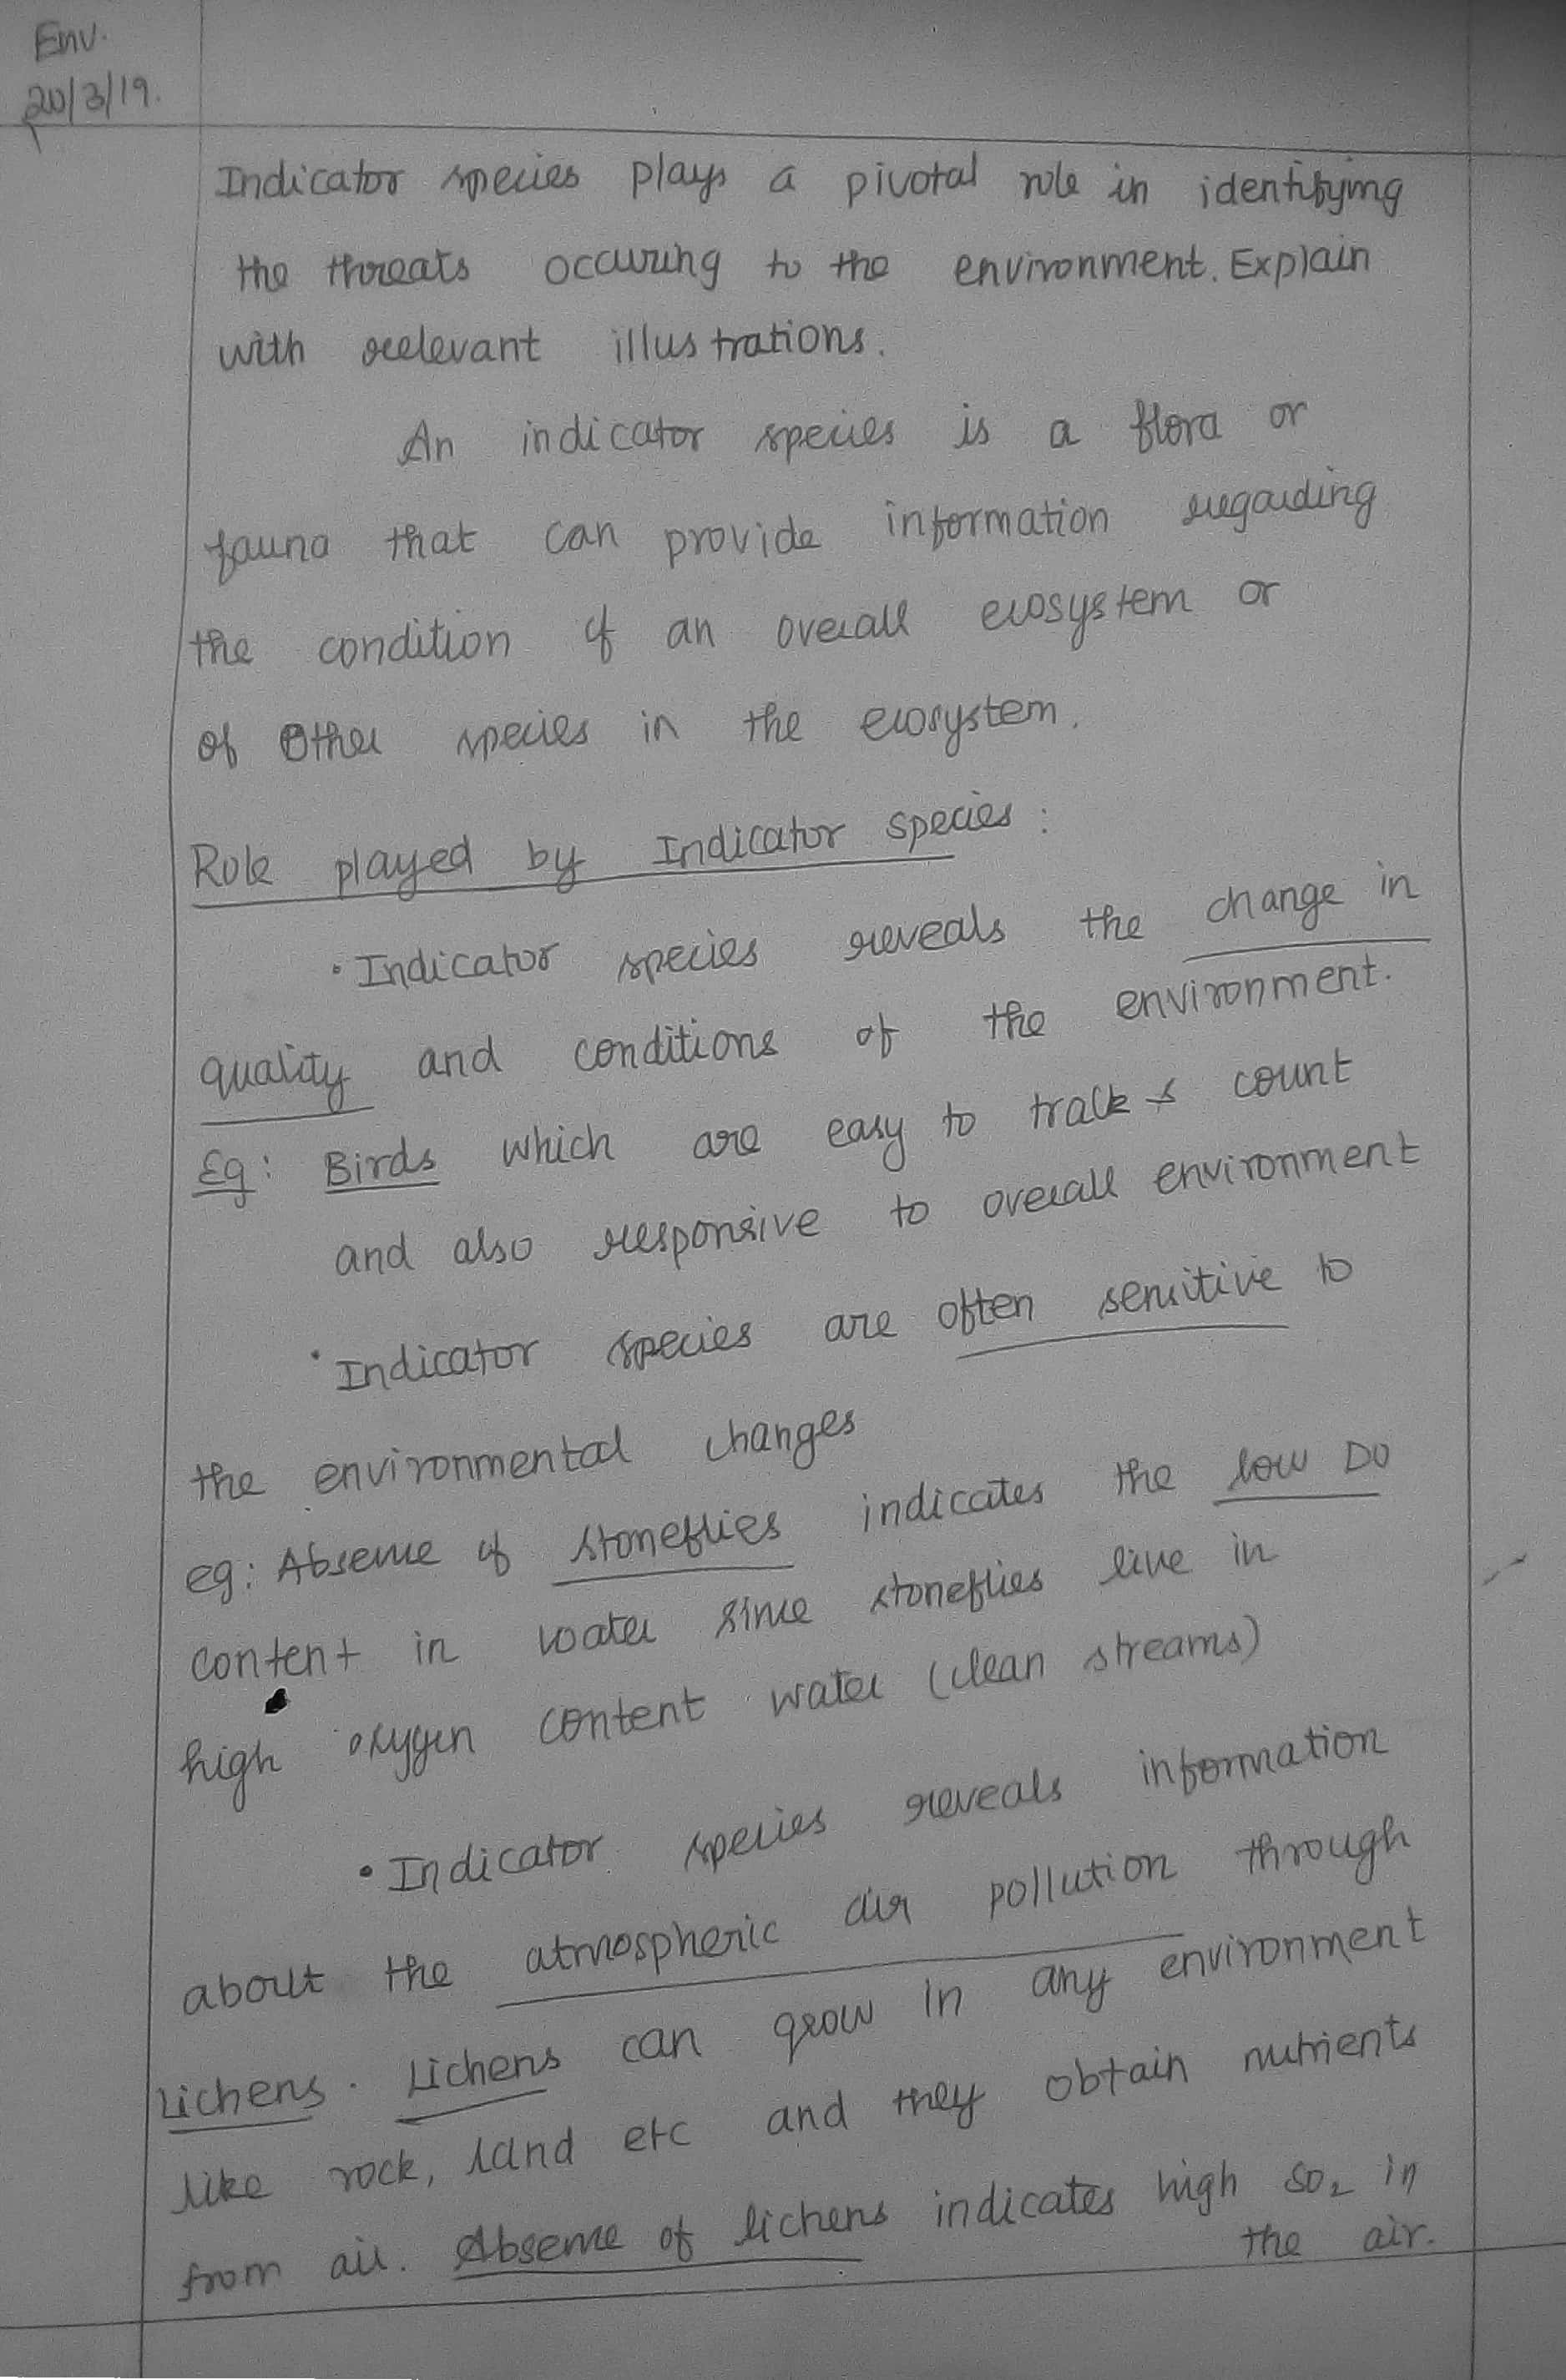 Env.
20/3/19.
Indicator species plays a pivotal role in identifying
the threats occuring to the environment. Explain
with relevant illustrations.
An indicator species is a flora or
fauna that can provide information regarding
the condition of an overall ecosystem or
of Other species in the ecosystem.
Role played by Indicator species :
• Indicator species reveals the change in
quality and conditions of the environment.
Eg: Birds which are easy to track & count
and also responsive to overall environment
• Indicator species are often sensitive to
the environmental changes
eg: Absence of stoneflies indicates the low DO
content in water since stoneflies live in
high oxygen content water (clean streams)
• Indicator species reveals information
about the atmospheric air pollution through
Lichens. Lichens can grow in any environment
like rock, sand etc and they obtain nutrients
from air. Absence of lichens indicates high SO₂ in
the air.